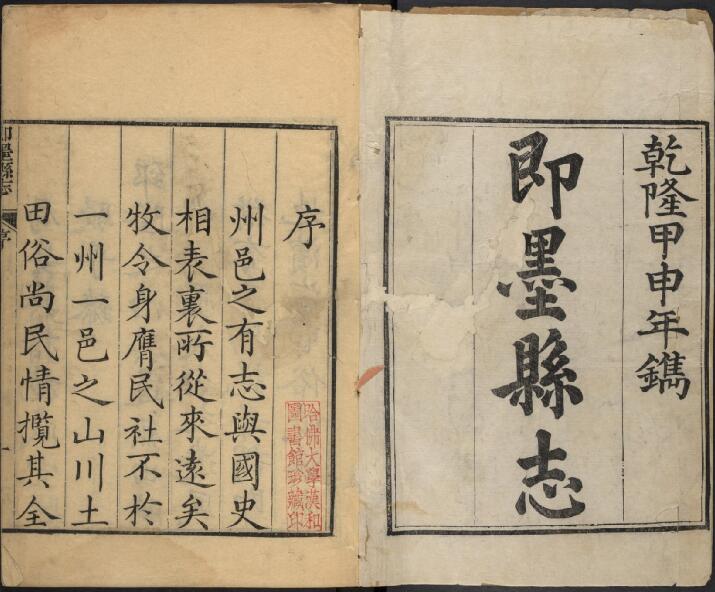 乾隆甲申年鐫
即墨縣志
序
州邑之有志與國史
相表裏所從來遠矣
牧令身膺民社不於
一州一邑之山川土
田俗尚民情攬其全
哈佛大學漢和
圖書館珍藏印
即墨縣志
序
一